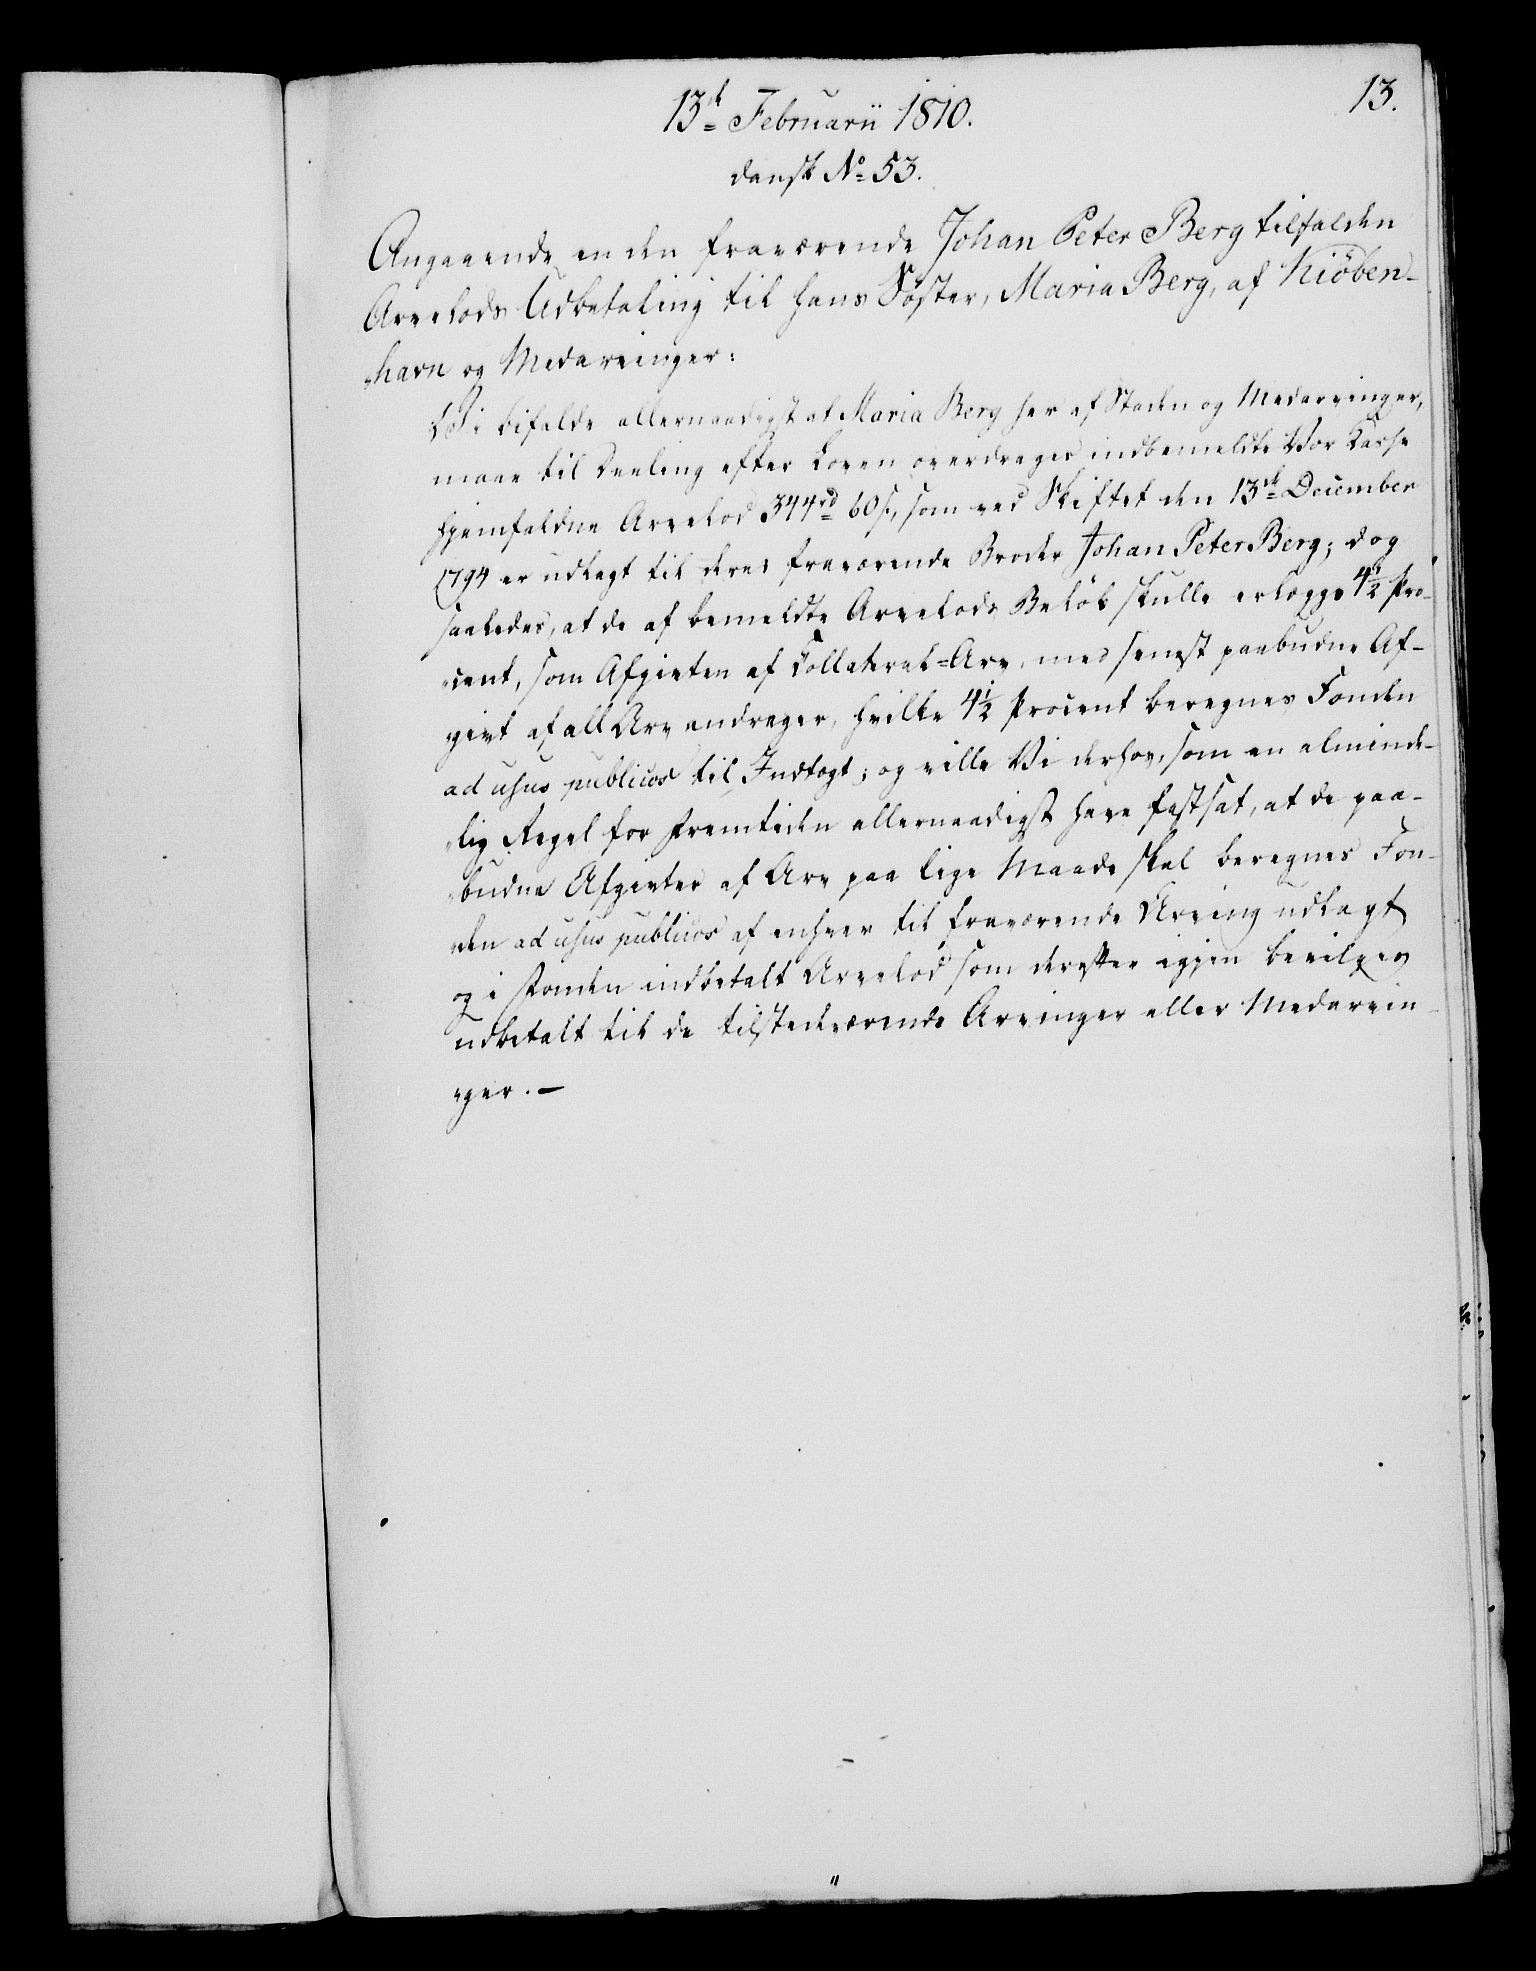 13.
13de Februarii 1810.
dansk No 53.
Angaaende en den fraværende Johan Peter Berg tilfalden
Arvelods Udbetaling til hans Søster, Maria Berg, af Kiöben-
havn og Medarvinger:
Vi bifalde allernaadigst at Maria Berg her af Staden og Medarvinger,
maae til Deeling efter Loven overdrages indbemeldte Vor Kasse
hjemfaldne Arvelod 344 rd 60 s, som ved Skiftet den 13de December
1794 er udlagt til deres fraværende Broder Johan Peter Berg; dog
saaledes, at de af bemeldte Arvelods Beløb skulle erlægge 4½ Pro-
cent, som Afgivten af Collateral=Arv, med senest paabudne Af-
givt af all Arv andrager, hvilke 4½ Procent beregnes Fonden
ad usus publicos til Indtægt; og ville Vi derhos, som en alminde-
lig Regel for Fremtiden allernaadigst have fastsat, at de paa-
budne Afgivter af Arv paa lige Maade skal beregnes Fon-
den ad usus publicos af enhver til fraværende Arving udlagt
og i Fonden indbetalt Arvelod som derefter igjen bevilges
udbetalt til de tilstedeværende Arvinger eller Medarvin-
ger. —